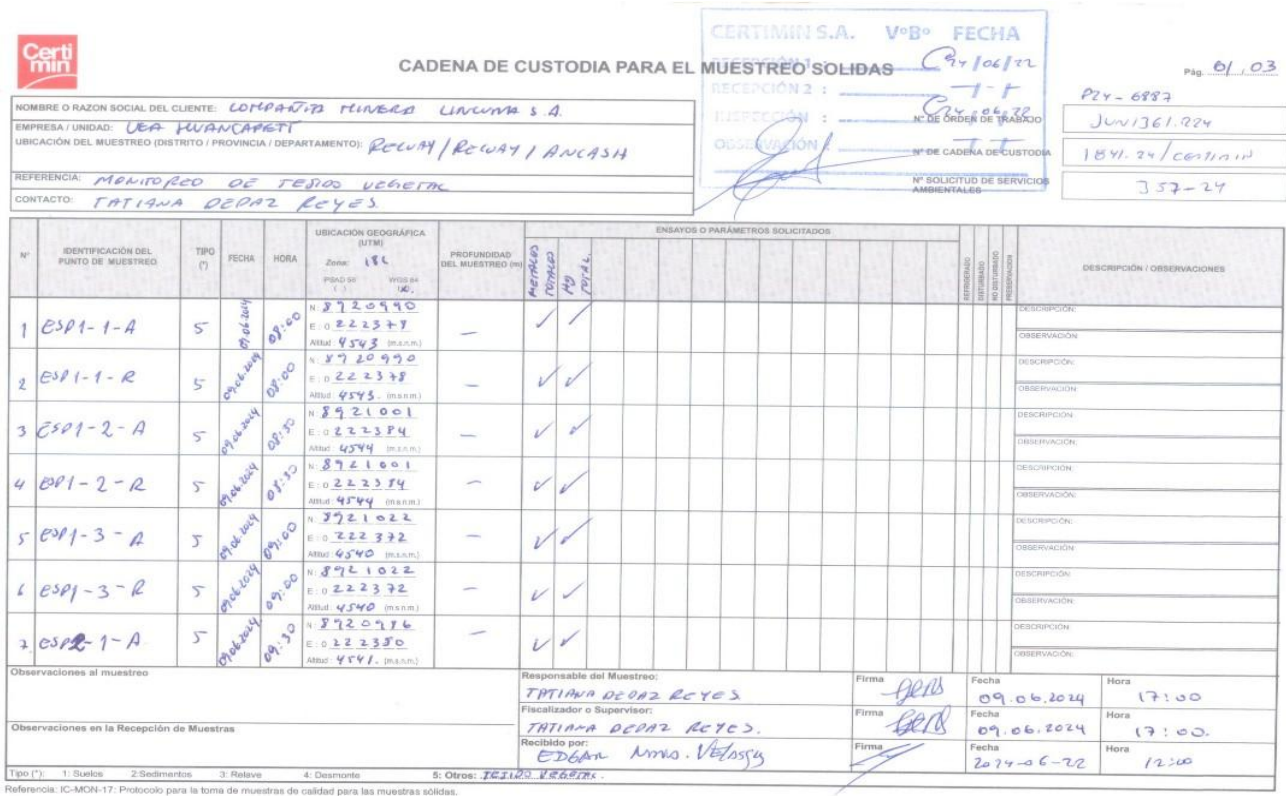 Certi
min
CERTIMIN S.A. VºBº FECHA
RECEPCIÓN 1 : 24/06/22
RECEPCIÓN 2 :
INSPECCIÓN : 24.06.22
OBSERVACIÓN :
CADENA DE CUSTODIA PARA EL MUESTREO SOLIDAS
Pág. 01 / 03
P24 - 6887
NOMBRE O RAZON SOCIAL DEL CLIENTE: COMPAÑIA MINERA LINCUNA S.A.
EMPRESA / UNIDAD: UEA HUANCAPETI
UBICACIÓN DEL MUESTREO (DISTRITO / PROVINCIA / DEPARTAMENTO): RECUAY / RECUAY / ANCASH
REFERENCIA: MONITOREO DE TEJIDO VEGETAL
CONTACTO: TATIANA DEPAZ REYES
Nº DE ORDEN DE TRABAJO JUN1361.R24
Nº DE CADENA DE CUSTODIA 1841.24/CERTIMIN
Nº SOLICITUD DE SERVICIOS AMBIENTALES 357-24
Nº IDENTIFICACIÓN DEL PUNTO DE MUESTREO TIPO (*) FECHA HORA UBICACIÓN GEOGRÁFICA (UTM) Zona: 18L PSAD 56 ( ) WGS 84 (X) PROFUNDIDAD DEL MUESTREO (m) ENSAYOS O PARÁMETROS SOLICITADOS METALES TOTALES Hg TOTAL. REFRIGERADO DISTURBADO NO DISTURBADO PRESERVACION DESCRIPCIÓN / OBSERVACIONES
1 ESP1-1-A 5 09.06.2024 08:00 N: 8920990 E: 0222378 Altitud: 4543 (m.s.n.m.) — ✓ ✓ DESCRIPCIÓN: OBSERVACIÓN:
2 ESP1-1-R 5 09.06.2024 08:00 N: 8920990 E: 0222378 Altitud: 4543. (m.s.n.m.) — ✓ ✓ DESCRIPCIÓN: OBSERVACIÓN:
3 ESP1-2-A 5 09.06.2024 08:30 N: 8921001 E: 0222384 Altitud: 4544 (m.s.n.m.) — ✓ ✓ DESCRIPCIÓN: OBSERVACIÓN:
4 ESP1-2-R 5 09.06.2024 08:30 N: 8921001 E: 0222384 Altitud: 4544 (m.s.n.m.) — ✓ ✓ DESCRIPCIÓN: OBSERVACIÓN:
5 ESP1-3-A 5 09.06.2024 09:00 N: 8921022 E: 0222372 Altitud: 4540 (m.s.n.m.) — ✓ ✓ DESCRIPCIÓN: OBSERVACIÓN:
6 ESP1-3-R 5 09.06.2024 09:00 N: 8921022 E: 0222372 Altitud: 4540 (m.s.n.m.) — ✓ ✓ DESCRIPCIÓN: OBSERVACIÓN:
7 ESP2-1-A 5 09.06.2024 09:30 N: 8920986 E: 0222380 Altitud: 4541. (m.s.n.m.) — ✓ ✓ DESCRIPCIÓN: OBSERVACIÓN:
Observaciones al muestreo
Observaciones en la Recepción de Muestras
Responsable del Muestreo: TATIANA DEPAZ REYES Firma Fecha 09.06.2024 Hora 17:00
Fiscalizador o Supervisor: TATIANA DEPAZ REYES. Firma Fecha 09.06.2024 Hora 17:00.
Recibido por: EDGAR Firma Fecha 2024-06-22 Hora 12:00
Tipo (*): 1: Suelos 2:Sedimentos 3: Relave 4: Desmonte 5: Otros: TEJIDO VEGETAL.
Referencia: IC-MON-17: Protocolo para la toma de muestras de calidad para las muestras sólidas.